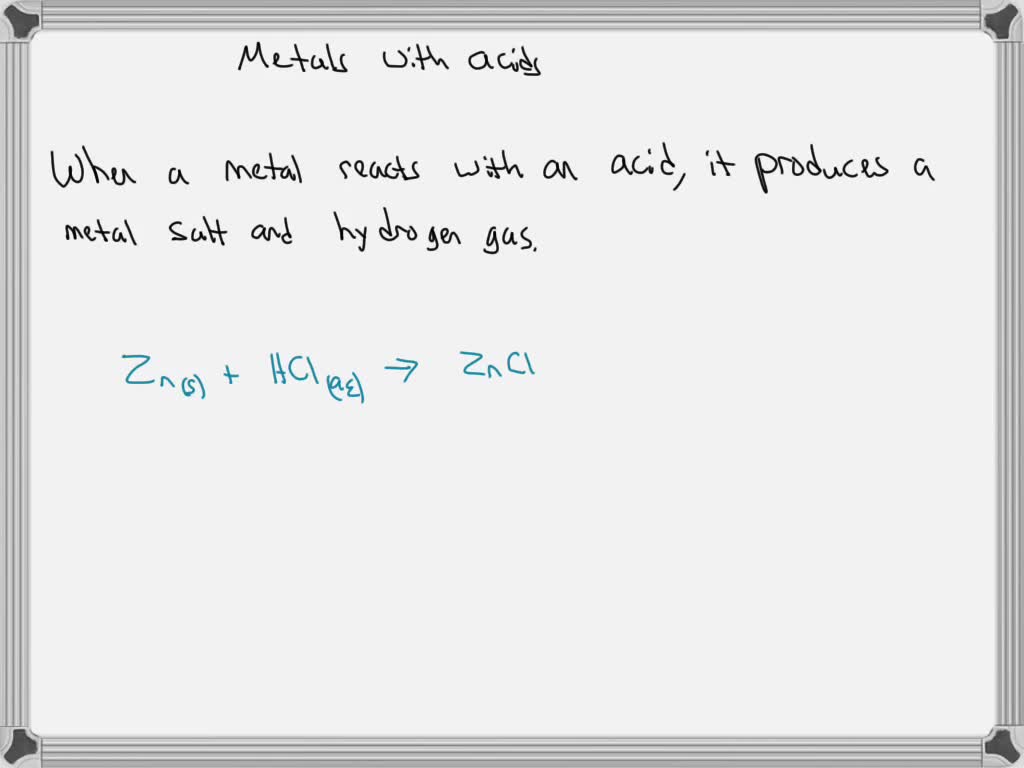 Metals with acids
When a metal reacts with an acid, it produces a
metal salt and hydrogen gas.
Zn(s) + HCl(aq) → ZnCl